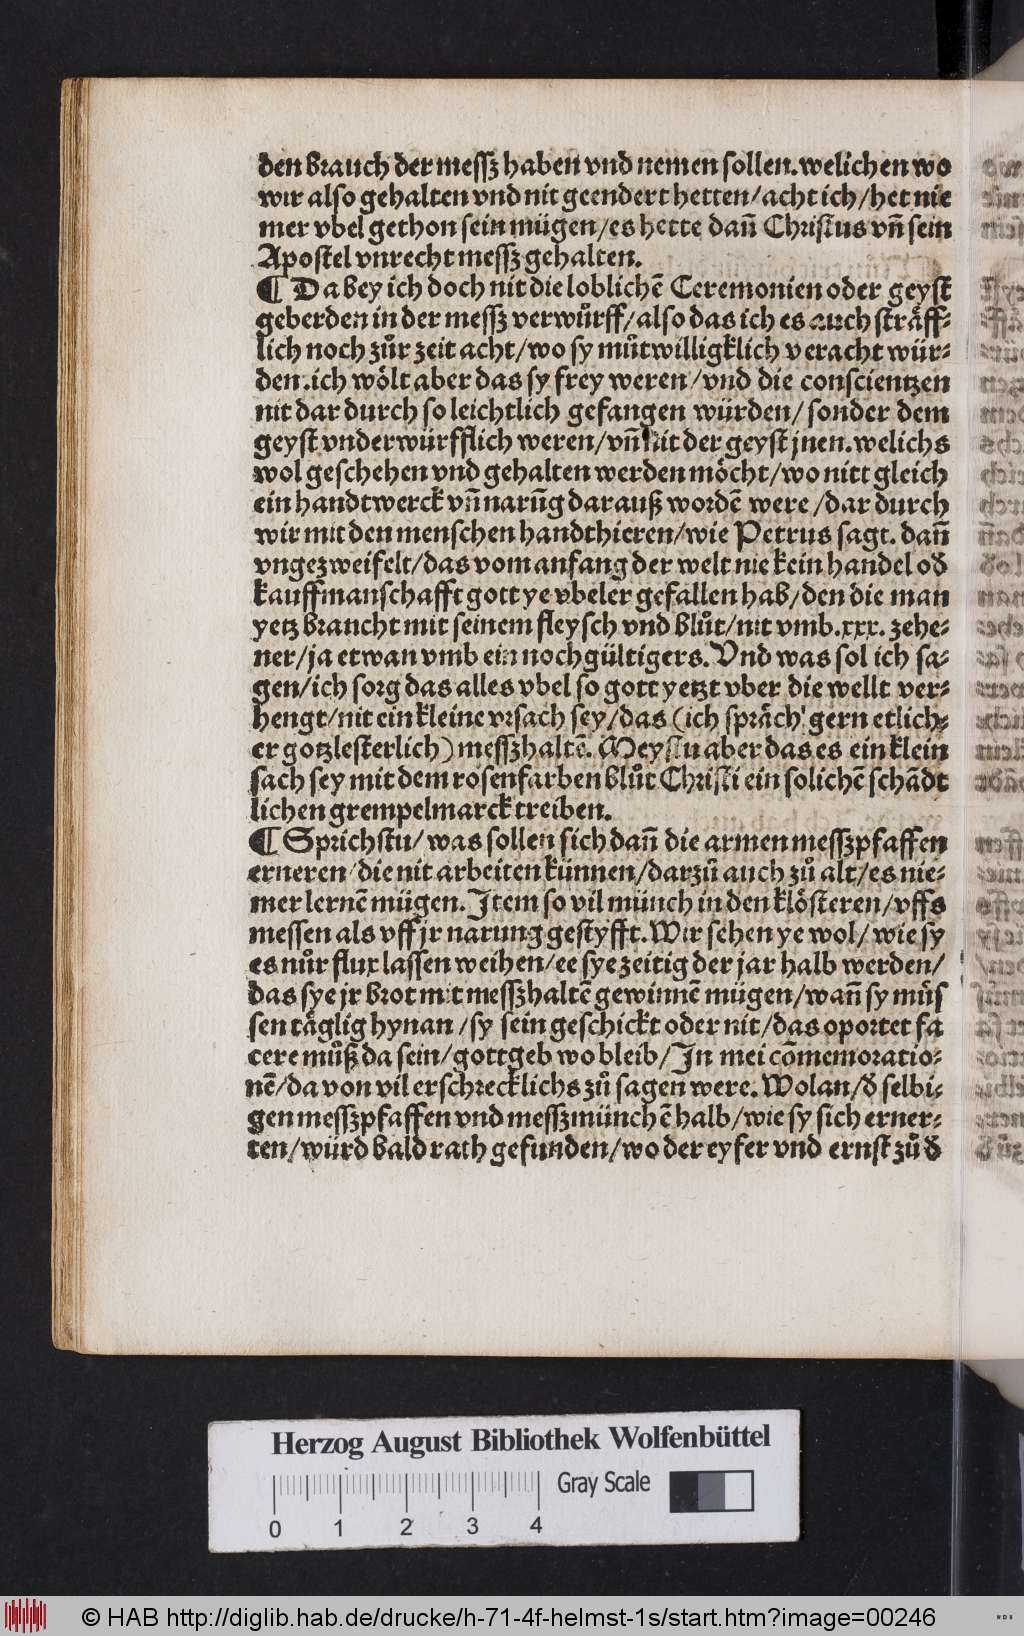 den brauch der messz haben vnd nemen sollen. welichen wo
wir also gehalten vnd nit geendert hetten/ acht ich/ het nie
mer vbel gethon sein mügen/ es hette dañ Christus vñ sein
Apostel vnrecht messz gehalten.
¶ Da bey ich doch nit die loblichē Ceremonien oder geyst
geberden in der messz verwůrff/ also das ich es auch sträff-
lich noch zůr zeit acht/ wo sy můtwilligklich veracht wür-
den. ich wölt aber das sy frey weren/ vnd die conscientzen
nit dar durch so leichtlich gefangen würden/ sonder dem
geyst vnderwürfflich weren/ vñ nit der geyst jnen. welichs
wol geschehen vnd gehalten werden möcht/ wo nitt gleich
ein handtwerck vñ narūg darauß wordē were/ dar durch
wir mit den menschen handthieren/ wie Petrus sagt. dañ
vngezweifelt/ das vom anfang der welt nie kein handel oď
kauffmanschafft gott ye vbeler gefallen hab/ den die man
yetz braucht mit seinem fleysch vnd blůt/ nit vmb .xxx. zehe-
ner/ ja etwan vmb ein nochgültigers. Vnd was sol ich sa-
gen/ ich sorg das alles vbel so gott yetzt vber die wellt ver-
hengt/ nit ein kleine vrsach sey/ das (ich spräch' gern etlich-
er gotzlesterlich) messzhaltē. Meystu aber das es ein klein
sach sey mit dem rosenfarben blůt Christi ein solichē schādt
lichen grempelmarck treiben.
¶ Sprichstu/ was sollen sich dañ die armen messzpfaffen
erneren/ die nit arbeiten künnen/ darzů auch zů alt/ es nie-
mer lernē mügen. Item so vil münch in den klösteren/ vffs
messen als vff jr narung gestyfft. Wir sehen ye wol/ wie sy
es nůr flux lassen weihen/ ee sye zeitig der jar halb werden/
das sye jr brot mit messzhaltē gewinnē mügen/ wañ sy můs
sen täglig hynan/ sy sein geschickt oder nit/ das oportet fa
cere můß da sein/ gott geb wo bleib/ In mei cōmemoratio-
nē/ da von vil erschrecklichs zů sagen were. Wolan/ ď selbi-
gen messzpfaffen vnd messzmünchē halb/ wie sy sich erner-
ten/ würd bald rath gefunden/ wo der eyfer vnd ernst zů ď
Herzog August Bibliothek Wolfenbüttel
0 1 2 3 4 Gray Scale
© HAB http://diglib.hab.de/drucke/h-71-4f-helmst-1s/start.htm?image=00246